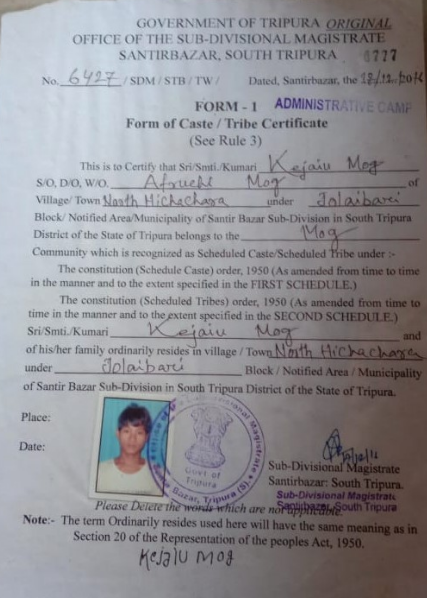 GOVERNMENT OF TRIPURA ORIGINAL
OFFICE OF THE SUB-DIVISIONAL MAGISTRATE
SANTIRBAZAR, SOUTH TRIPURA 4777
No. 6427 / SDM / STB / TW / Dated, Santirbazar, the
FORM - 1 ADMINISTRATIVE CAMP
Form of Caste / Tribe Certificate
(See Rule 3)
This is to Certify that Sri/Smti./Kumari Kejaiu Mog
S/O, D/O, W/O. Mog of
Village/ Town North Hichachara under Jolaibari
Block/ Notified Area/Municipality of Santir Bazar Sub-Division in South Tripura
District of the State of Tripura belongs to the Mog
Community which is recognized as Scheduled Caste/Scheduled Tribe under :-
The constitution (Schedule Caste) order, 1950 (As amended from time to time
in the manner and to the extent specified in the FIRST SCHEDULE.)
The constitution (Scheduled Tribes) order, 1950 (As amended from time to
time in the manner and to the extent specified in the SECOND SCHEDULE.)
Sri/Smti./Kumari Kejaiu Mog and
of his/her family ordinarily resides in village / Town North Hichachara
under Jolaibari Block / Notified Area / Municipality
of Santir Bazar Sub-Division in South Tripura District of the State of Tripura.
Place:
Date:
Sub-Divisional Magistrate
Govt. of
Tripura
Bazar, Tripura (S)
Sub-Divisional Magistrate
Santirbazar: South Tripura.
Sub-Divisional Magistrate
Santirbazar, South Tripura
Please Delete the words which are not applicable.
Note:- The term Ordinarily resides used here will have the same meaning as in
Section 20 of the Representation of the peoples Act, 1950.
Kejaiu Mog